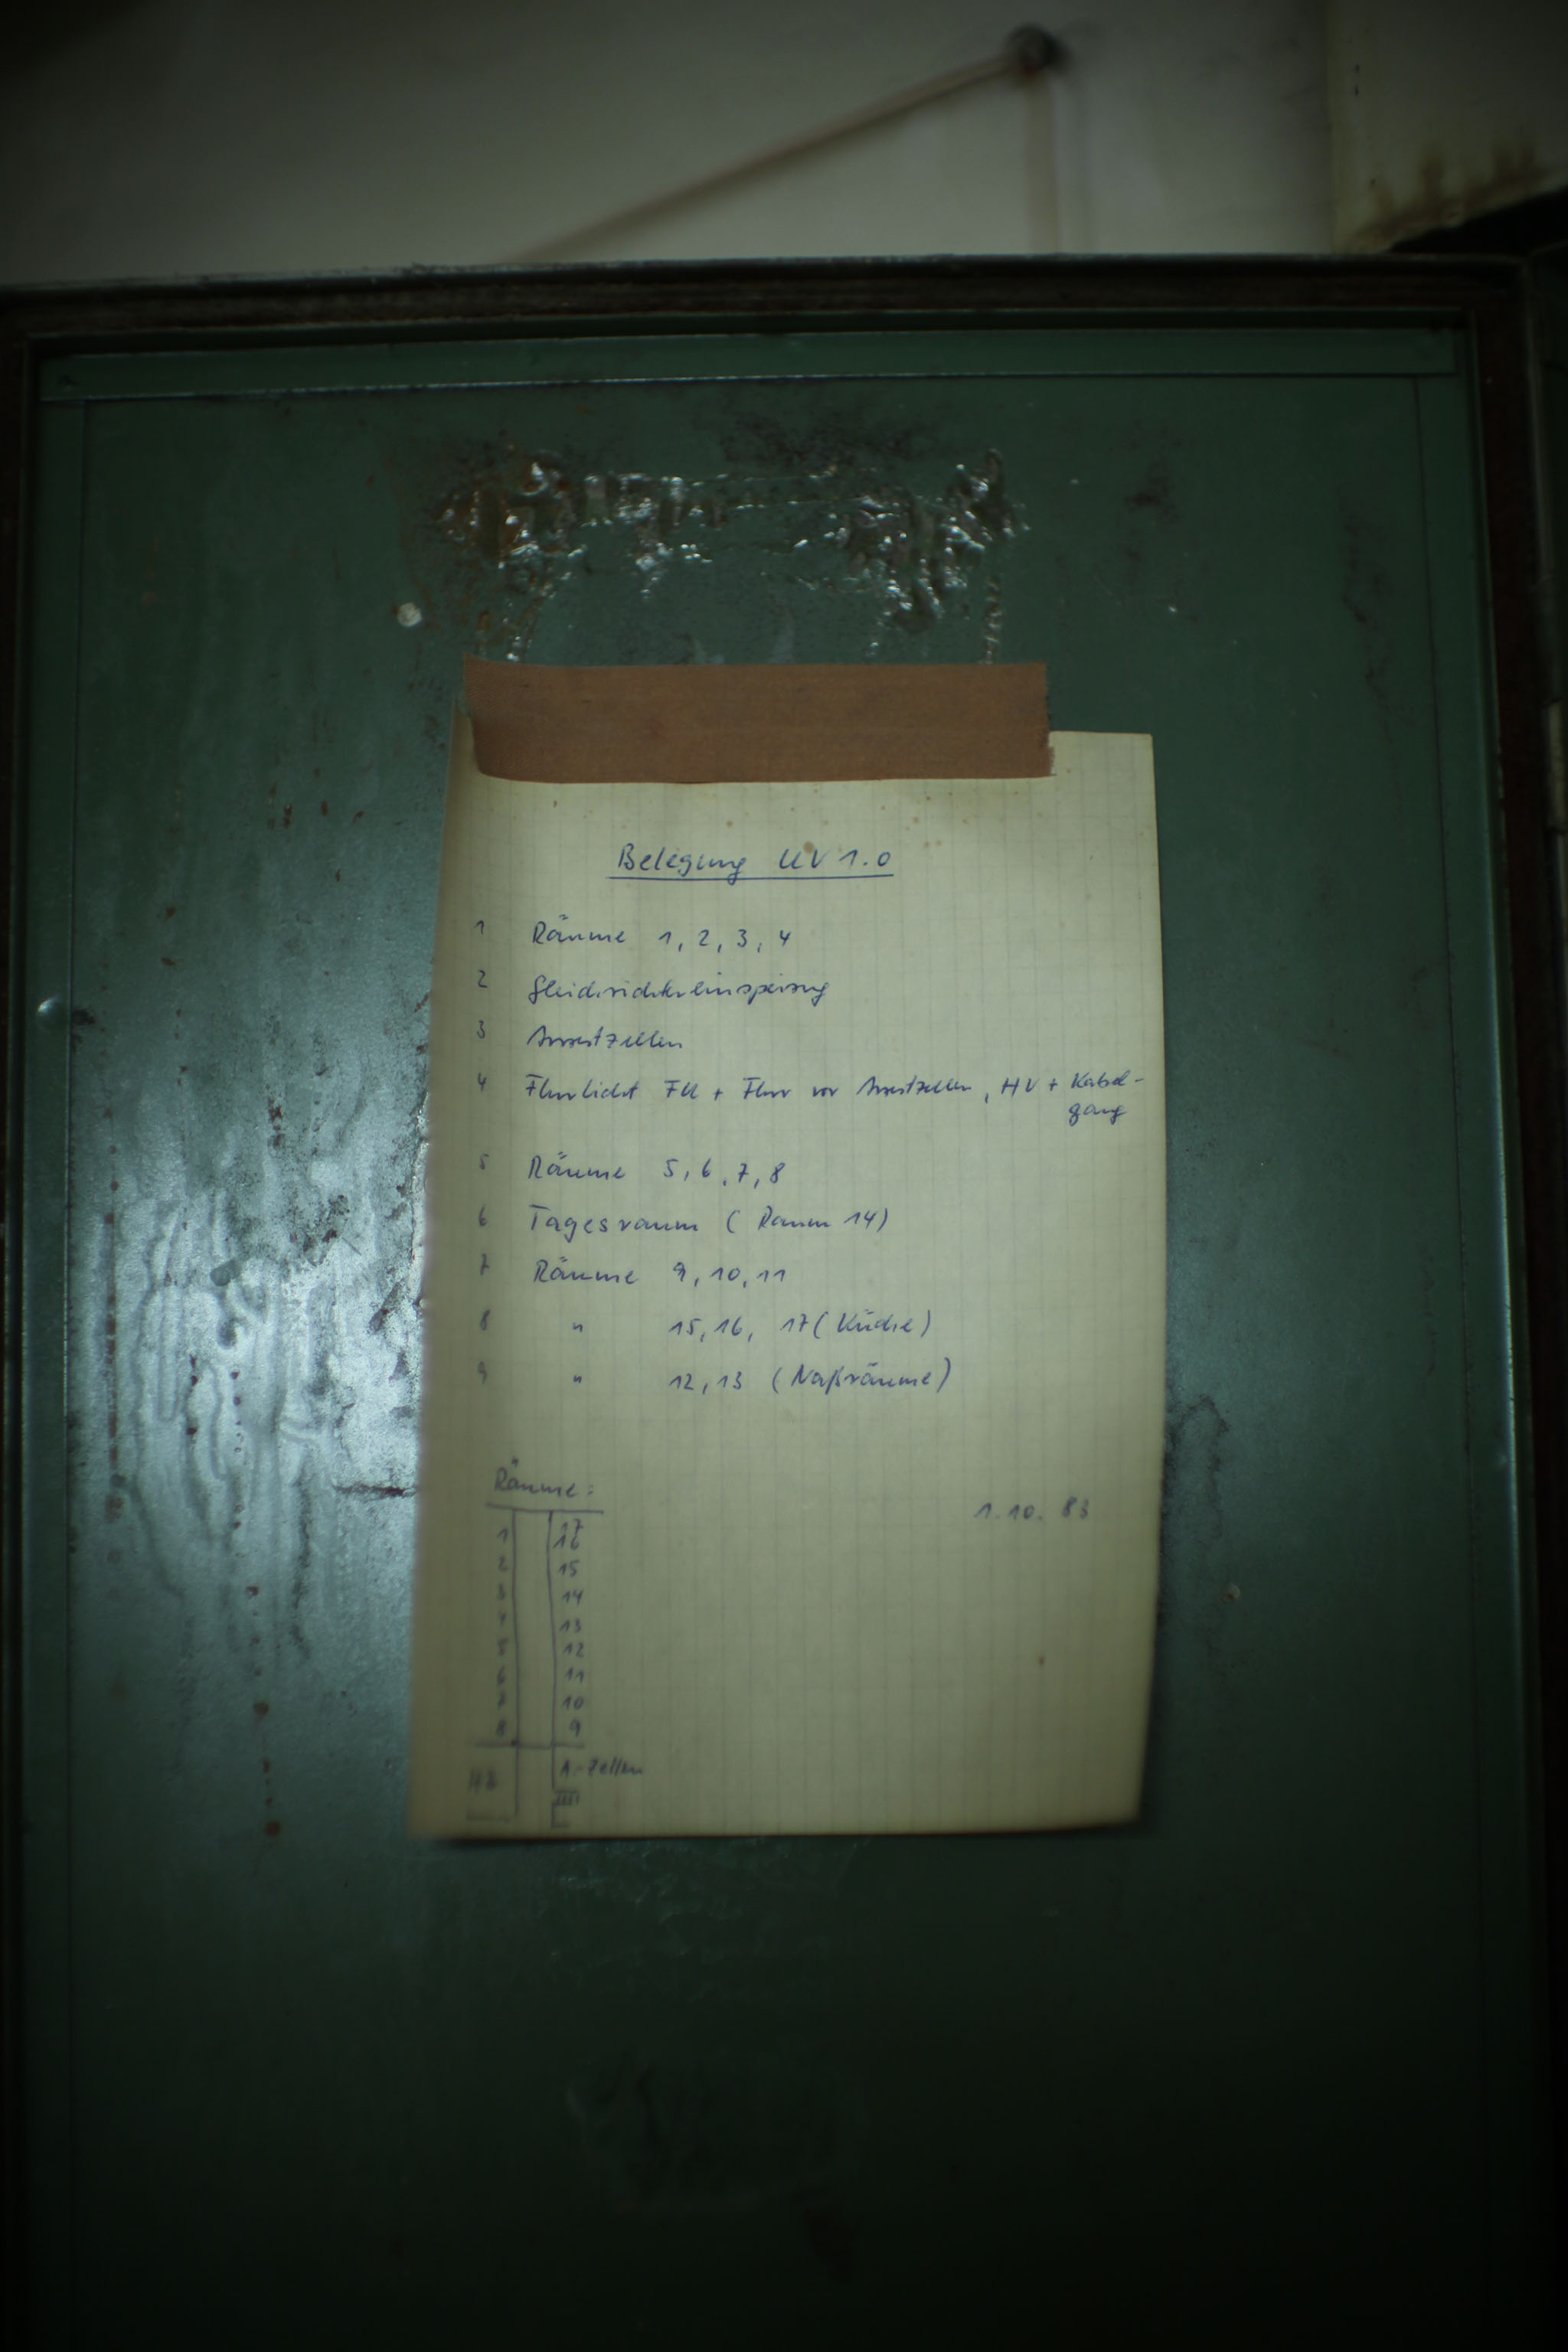 Belegung UV 1.0
1 Räume 1, 2, 3, 4
2 Gleichrichtereinspeisung
3 Arrestzellen
4 Flurlicht FU + Flur vor Arrestzellen, HV + Kabel-
gang
5 Räume 5, 6, 7, 8
6 Tagesraum ( Raum 14)
7 Räume 9, 10, 11
8 " 15, 16, 17 ( Küche )
9 " 12, 13 ( Naßräume )
Räume:
1.10. 83
17
1 16
2 15
3 14
4 13
5 12
6 11
7 10
8 9
A.-Zellen